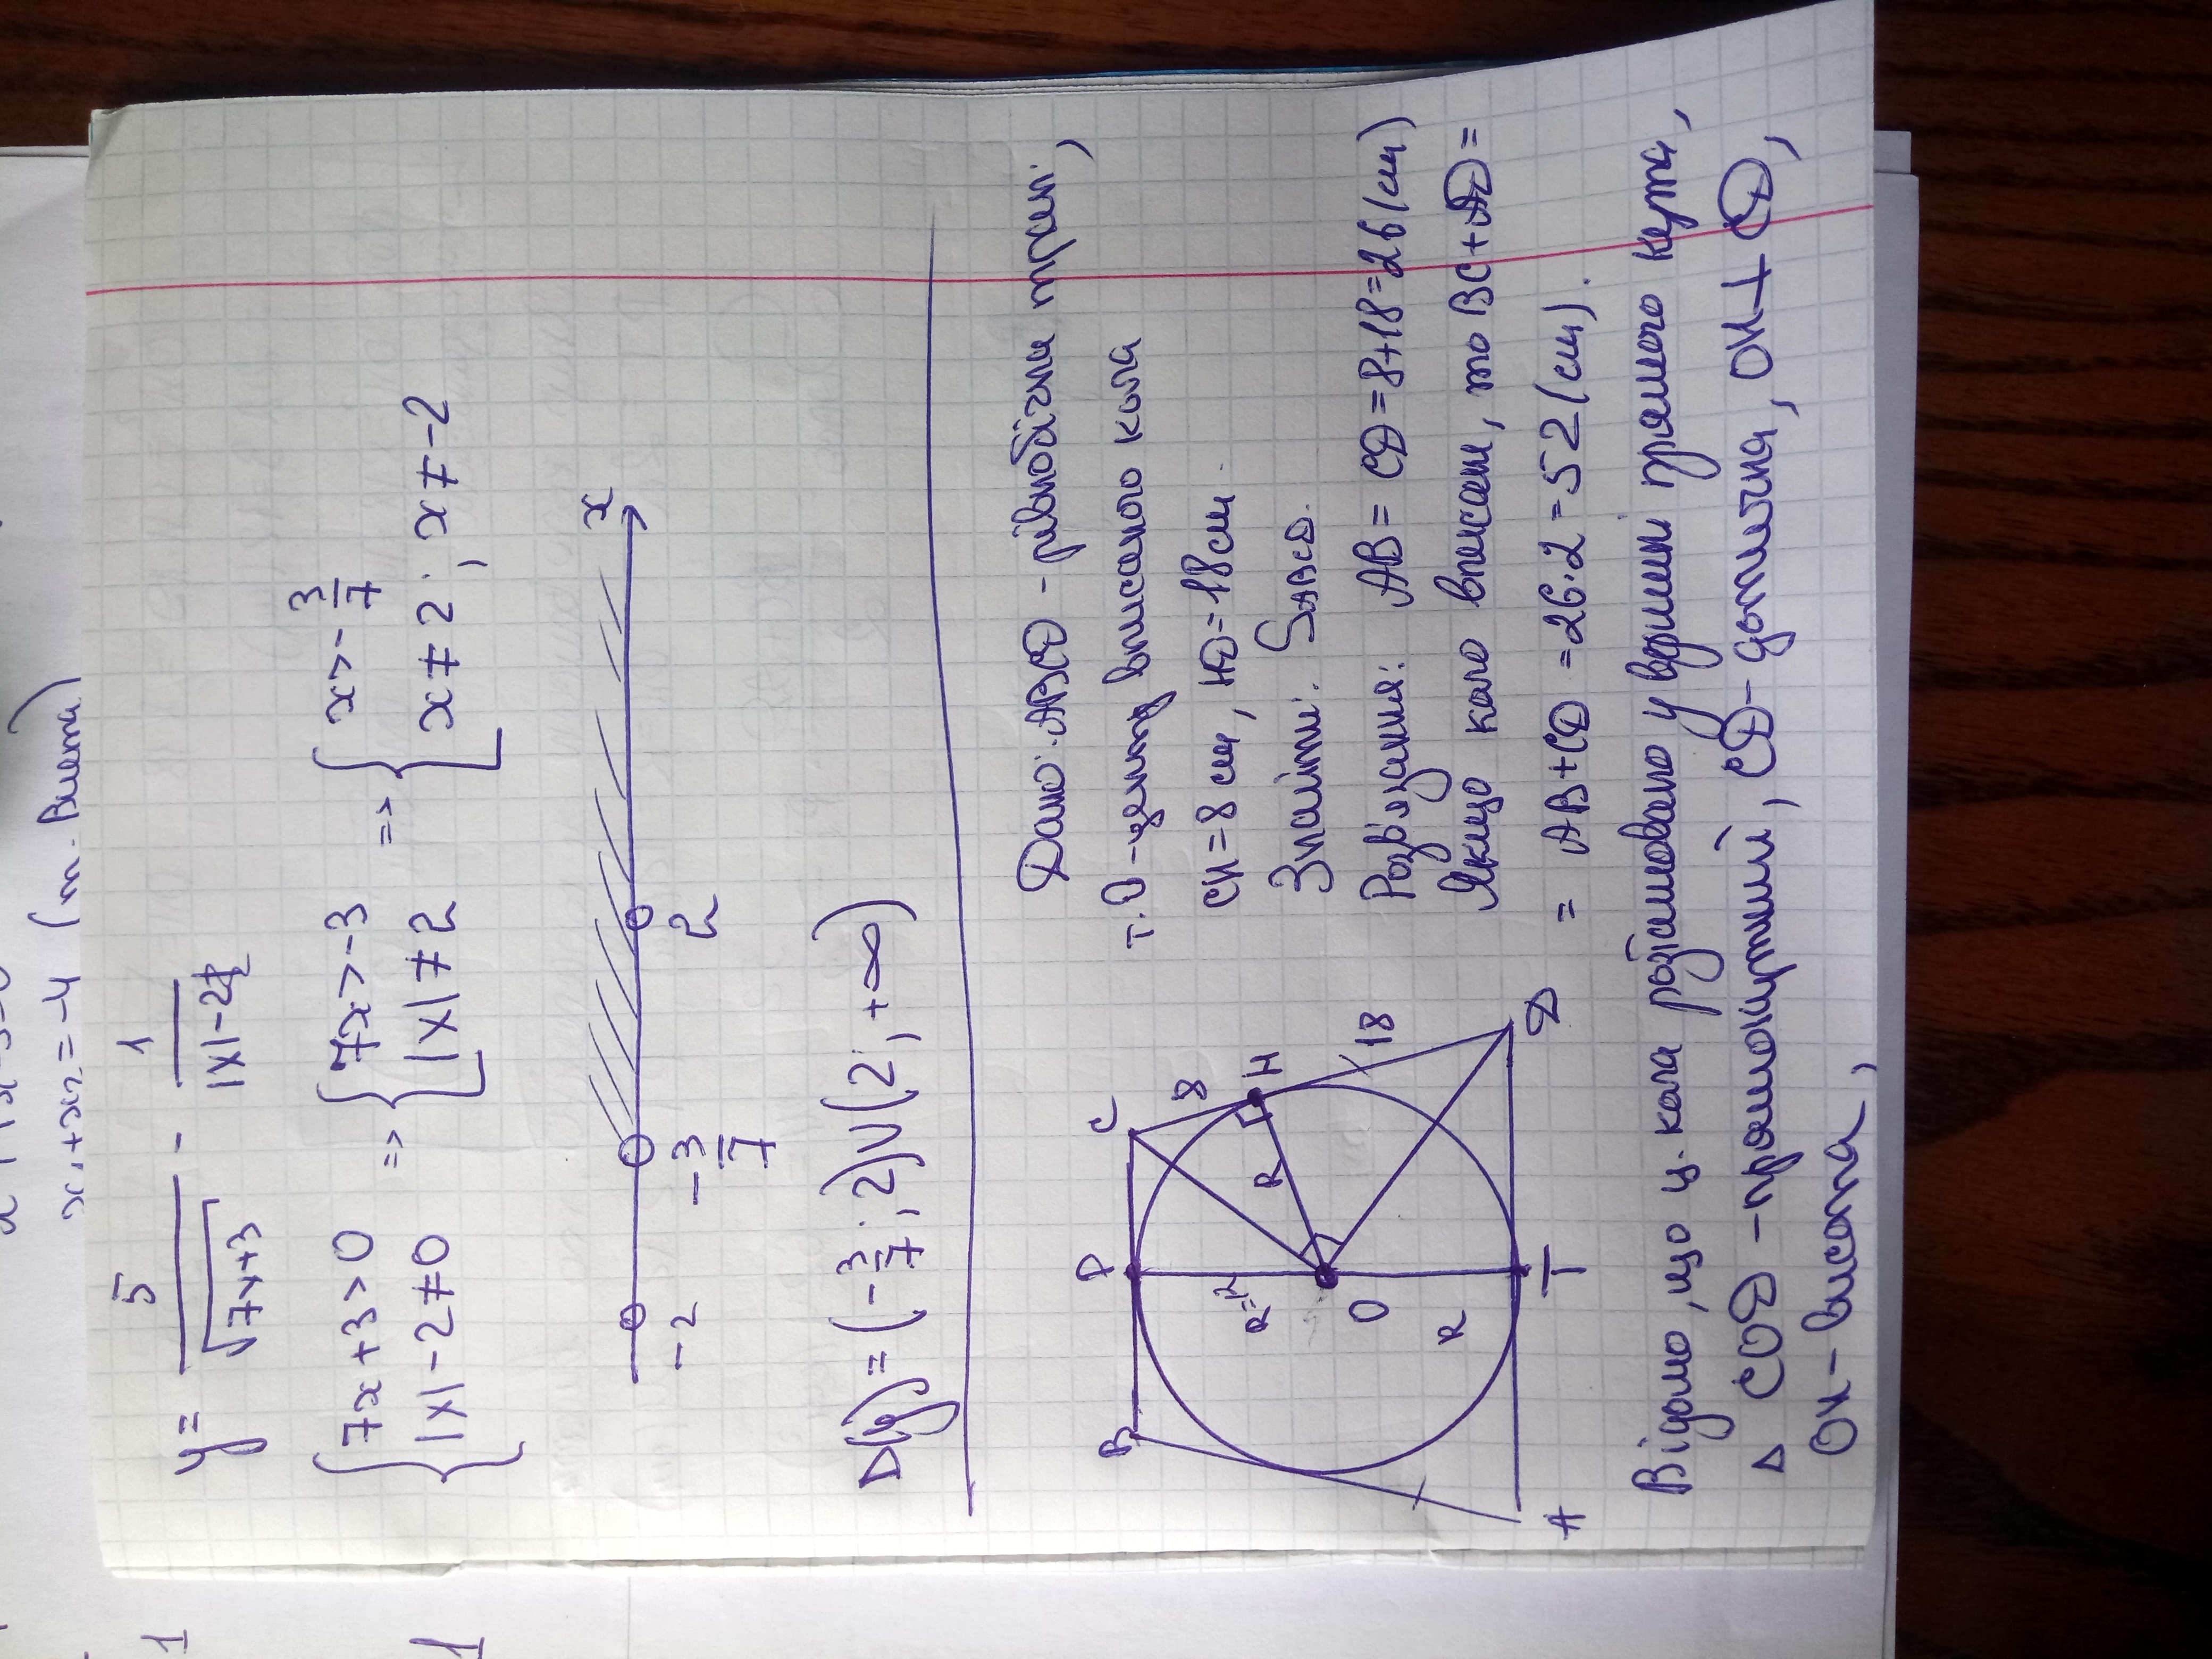 x₁+x₂=-4 (т. Виета)
y = 5/√7x+3 - 1/|x|-2
{7x+3>0 |x|-2≠0 => {7x>-3 |x|≠2 => {x>-3/7 [x≠2; x≠-2
-2 -3/7 2 x
D(y)=(-3/7; 2)∪(2; +∞)
Дано: ABCD - рівнобічна трап.,
т. О - центр вписаного кола
CH=8 см, HD=18 см.
Знайти: SABCD.
Розв'язання: AB=CD=8+18=26(см)
Якщо коло вписане, то BC+AD=
= AB+CD=26·2=52(см).
B P C
8 H
R R
18
O
R
A T D
Відомо, що ц. кола розташовано у вершині прямого кута,
Δ COD - прямокутний, CD - дотична, OH⊥CD,
OH - висота,
1
1